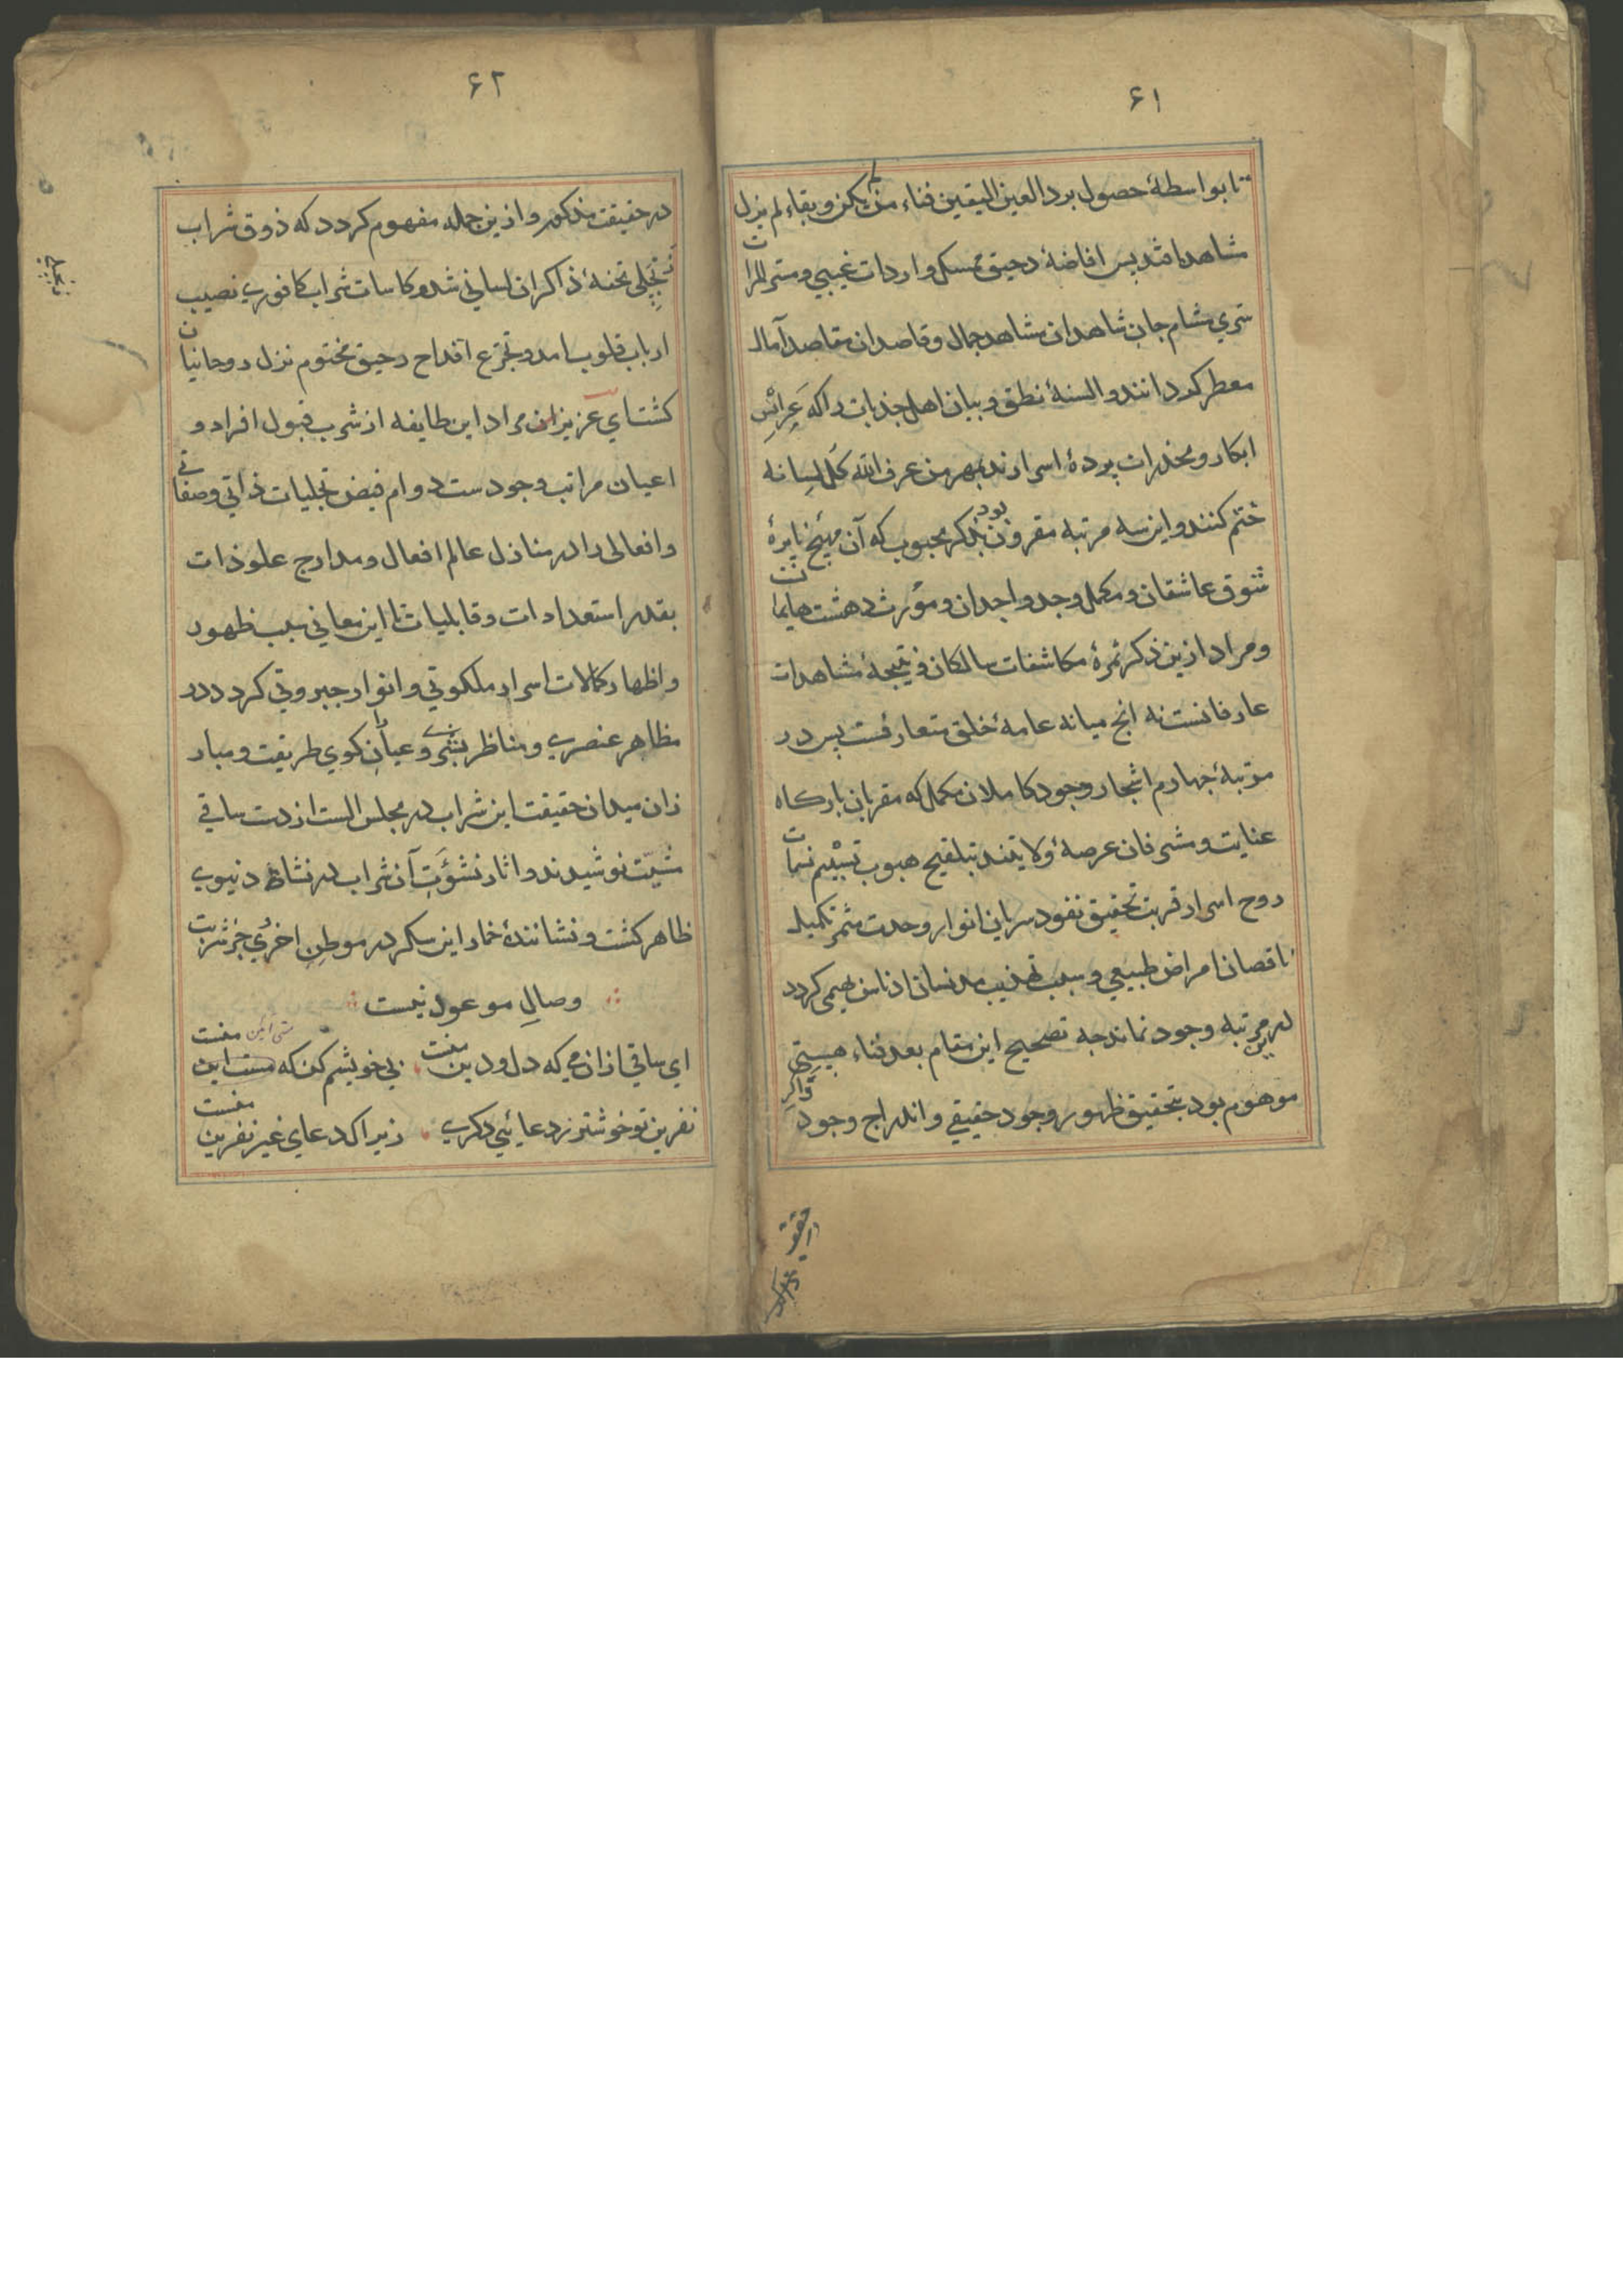 ۶۱
تا بواسطهٔ حصول برد العین الیقین فناء من لم یکن و بقاء لم یزل
مشاهدات قدیس افاضهٔ رحیق مسکی واردات غیبی و مثمرات
سری مشام جان شاهدان مشاهد جمال و قاصدان مقاصد آمال
معطر کردانند و السنهٔ نطق و بیان اهل جذبات را که عرائس
ابکار و مخدرات پردهٔ اسرارند بمهر من عرف الله کل لسانه
ختم کنند و این سه مرتبه مقرون بود بذکر محبوب که آن مهیج نایرهٔ
شوق عاشقان و مکمل وجد واجدان و مؤرث دهشت هایمانت
و مراد ازین ذکر ثمرهٔ مکاشفات سالکان و نتیجهٔ مشاهدات
عارفانست نه انچ میانه عامهٔ خلق متعارفست پس در
مرتبهٔ چهارم اشجار وجود کاملان مکمل که مقربان بارکاه
عنایت و مشرفان عرصهٔ ولایتند بتلقیح هبوب نسیم نسمات
روح اسرار قربت تحقیق نفود سریان انوار وحدت مثمر تکمیل
ناقصان امراض طبیعی و سبب تهذیب مدنسان ادناس بهیمی کردد
درین مرتبه وجود نماند چه تصحیح این مقام بعد فناء هستی
موهوم بود بتحقیق ظهور وجود حقیقی و اندراج وجود ذاکر
حقیقی
۶۲
در حقیقت مذکور و ازین جمله مفهوم کردد که ذوق شراب
تجلی تحفهٔ ذاکران لسانی شد و کاسات شراب کافوری نصیب
ارباب قلوب امد و تجرع اقداح رحیق مختوم نزل روحانیان
کشت ای عزیز ان مراد این طایفه از شرب قبول افراد و
اعیان مراتب وجودست دوام فیض تجلیات ذاتی و صفاتی
و افعالی را در منازل عالم افعال و مدارج علو ذات
بقدر استعدادات و قابلیات تا این معانی سبب ظهور
و اظهار کمالات اسرار ملکوتی و انوار جبروتی کردد در
مظاهر عنصری و مناظر بشری و عیاران کوی طریقت و مبار
زان میدان حقیقت این شراب در مجلس الست از دست ساقی
مشیّت نوشیدند و اثار نشوَت آن شراب در نشاهٔ دنیوی
ظاهر کشت و نشانندهٔ خمار این سکر در موطن اخروی جز شربت
وصالِ موعود نیست
ای ساقی ازان می که دل و دین منست بی خویشم کن که مستی ایین منست
نفرین تو خوشتر ز دعایی دکری زیرا که دعای غیر نفرین منست